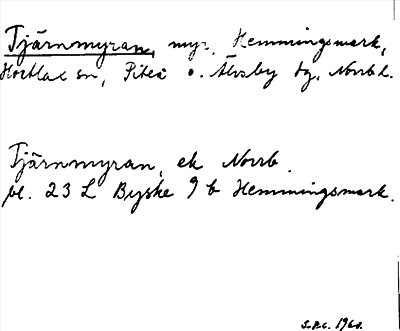 Tjärnmyran, myr, Hemmingsmark,
Hortlax sn, Piteå o. Älvsby tg, Norrb l.
Tjärnmyran, ek Norrb.
bl. 23 L Byske 9 b Hemmingsmark.